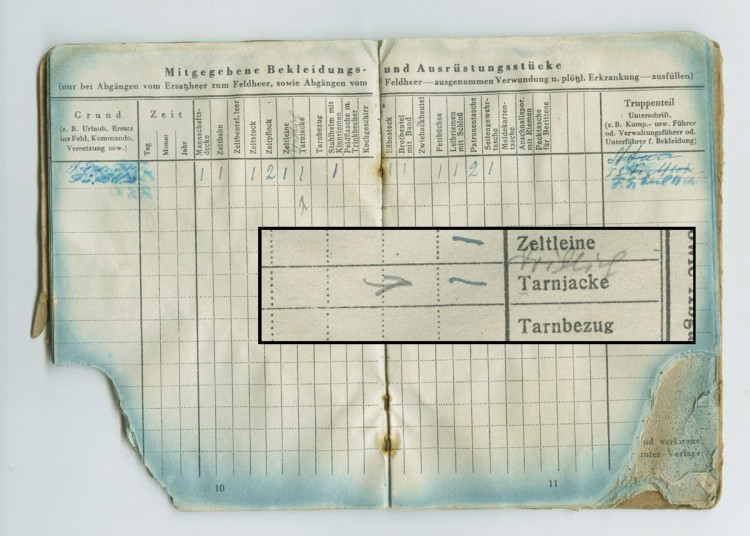 Mitgegebene Bekleidungs- und Ausrüstungsstücke
(nur bei Abgängen vom Ersatzheer zum Feldheer, sowie Abgängen vom Feldheer—ausgenommen Verwundung u. plötzl. Erkrankung—ausfüllen)
Grund
(z. B. Urlaub, Ersatz
ins Feld, Kommando,
Versetzung usw.)
Zeit
Tag
Monat
Jahr
Mannschafts-
decke
Zeltbahn
Zeltbeutel, leer
Zeltstock
Zeltpflock
Zeltleine
Tarnjacke
Tarnbezug
Stahlhelm mit
Kinnriemen
Feldflasche m.
Trinkbecher
Kochgeschirr
Eßbesteck
Brotbeutel
mit Band
Zwiebackbeutel
Fettbüchse
Leibriemen
mit Schloß
Patronentasche
Seitengewehr-
tasche
Meldekarten-
tasche
Anschnallspor.
mit Riemen
Packtasche
für Berittene
Truppenteil
Unterschrift,
(z. B. Komp.- usw. Führer
od. Verwaltungsführer od.
Unterführer f. Bekleidung)
1 1 1 1 2 1 1 1 1 1 1 1 2 1
1
Zeltleine
Tarnjacke
Tarnbezug
nd verlorene
unter Vorlage
10
11